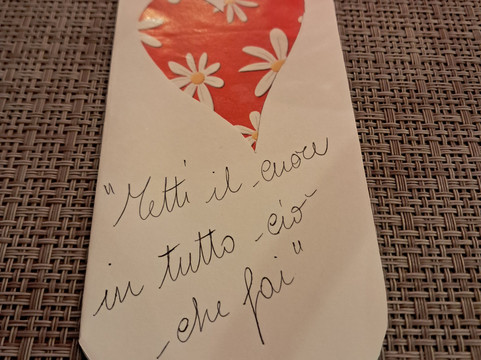 "Metti il cuore
in tutto ciò
che fai"